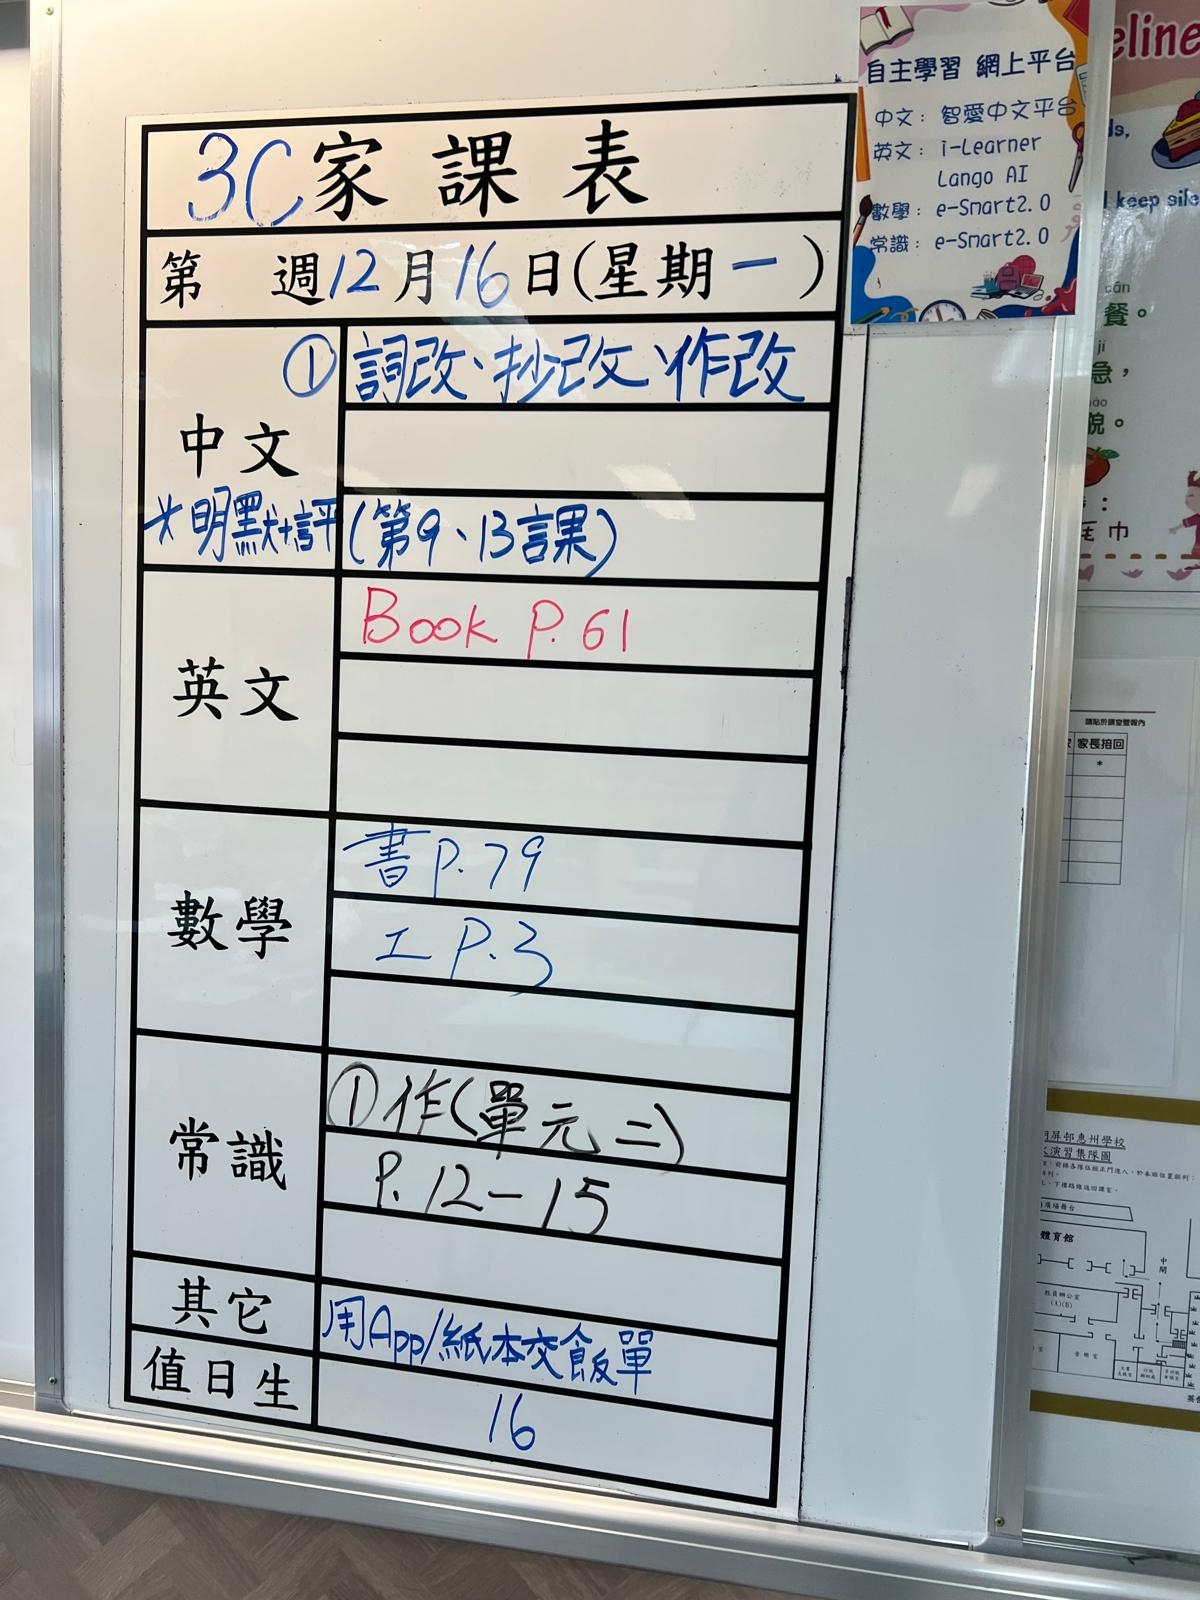 3C家課表
第 週12月16日(星期一)
中文
①詞改、抄改、作改
*明默+評(第9、13課)
英文
Book P.61
數學
書 P.79
工 P.3
常識
①作(單元二)
P.12-15
其它
用App/紙本交飯單
值日生
16
自主學習 網上平台
中文: 智愛中文平台
英文: i-Learner
Lango AI
數學: e-Smart2.0
常識: e-Smart2.0
eline
ds,
keep sile
cān
餐。
jí
急,
貌。
巾
請貼於課室壁報內
家長簽回
*
明屏邨惠州學校
演習集隊圖
體育館
中閘
教員辦公室
(A)(B)
音樂室